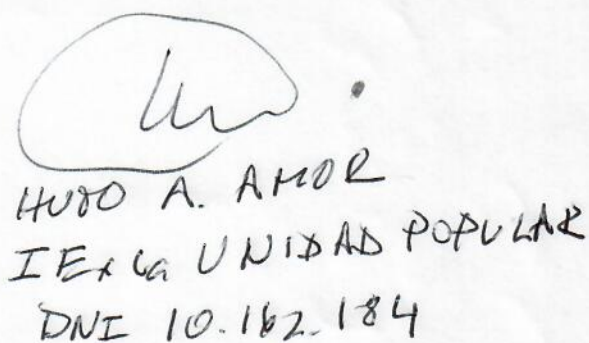 HUGO A. AMOR
IE x la UNIDAD POPULAR
DNI 10.162.184